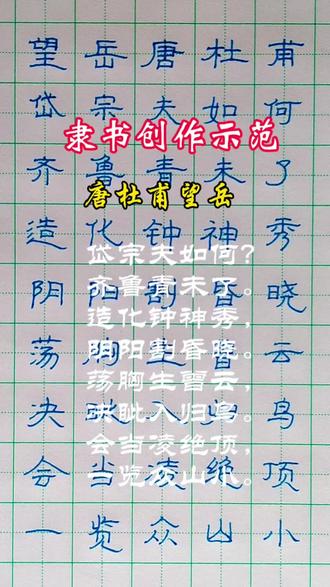 望岳唐杜甫
岱宗夫如何
隶书创作示范
齐鲁青未了
唐杜甫望岳
造化钟神秀
岱宗夫如何?
齐鲁青未了。
造化钟神秀,
阴阳割昏晓。
荡胸生曾云,
决眦入归鸟。
会当凌绝顶,
一览众山小。
阴阳割昏晓
荡胸生云
决眦入归鸟
会当凌绝顶
一览众山小